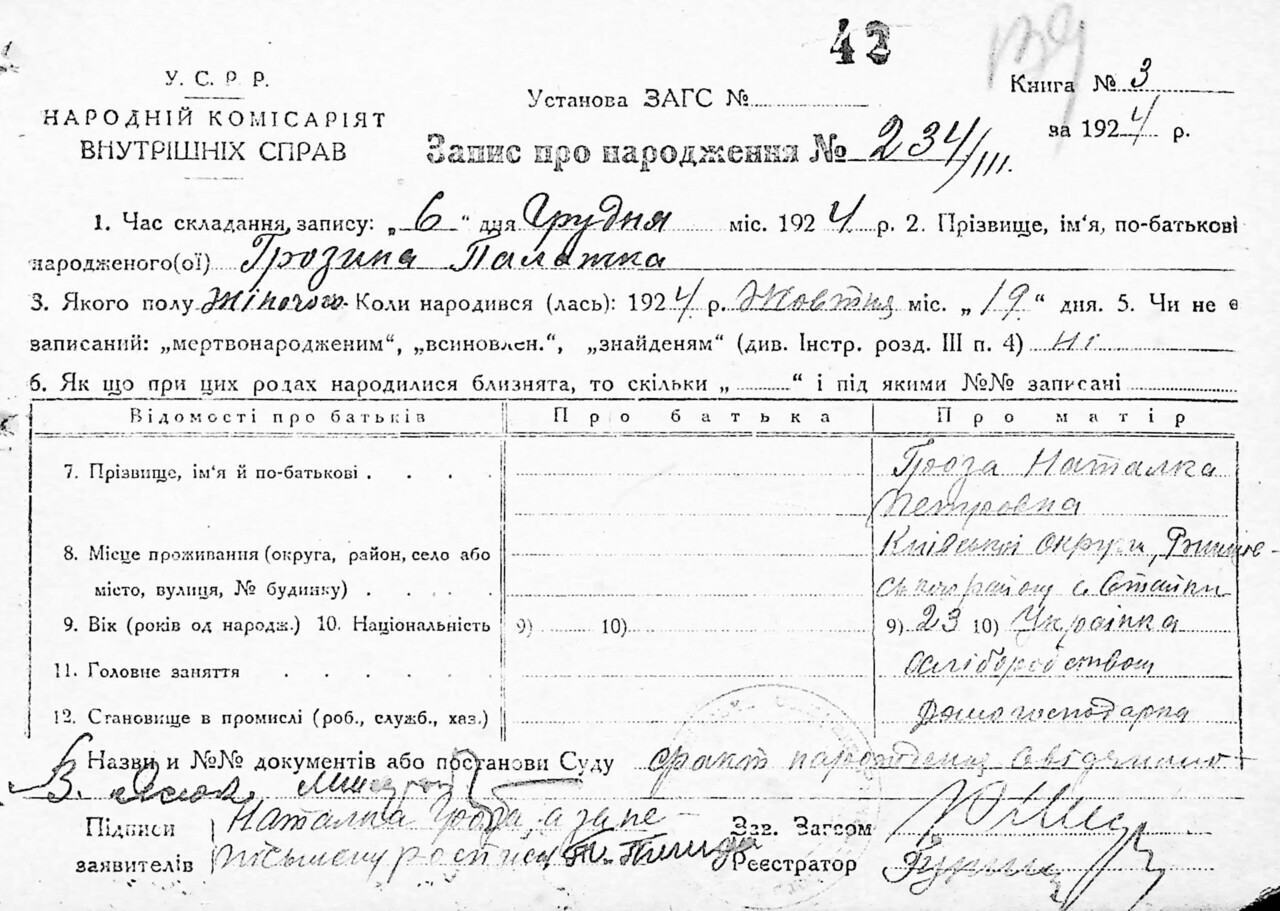 42
139
У. С. Р. Р.
НАРОДНІЙ КОМІСАРІЯТ
ВНУТРІШНІХ СПРАВ
Установа ЗАГС №
Книга № 3
за 1924 р.
Запис про народження № 234/III.
1. Час складання запису: „6“ дня Грудня міс. 1924 р. 2. Прізвище, ім‘я, по-батькові
народженого(ої) Грозина Палажка
3. Якого полу Жіночого Коли народився (лась): 1924 р. Жовтня міс. „19“ дня. 5. Чи не є
записаний: „мертвонародженим“, „всиновлен.“, „знайденям“ (див. Інстр. розд. III п. 4) ні
6. Як що при цих родах народилися близнята, то скільки „ “ і під якими №№ записані
Відомості про батьків Про батька Про матір
7. Прізвище, ім‘я й по-батькові Гроза Наталка
Петровна
8. Місце проживання (округа, район, село або Київської округи,
місто, вулиця, № будинку) району с. Стайки
9. Вік (років од народж.) 10. Національність 9) 10) 9) 23 10) Українка
11. Головне заняття Хліборобством
12. Становище в промислі (роб., служб., хаз.) Домогосподарка
Назви и №№ документів або постанови Суду факт народження
Підписи Наталка Гроза, а за не
заявителів письмену
Зав. Загсом
Реєстратор